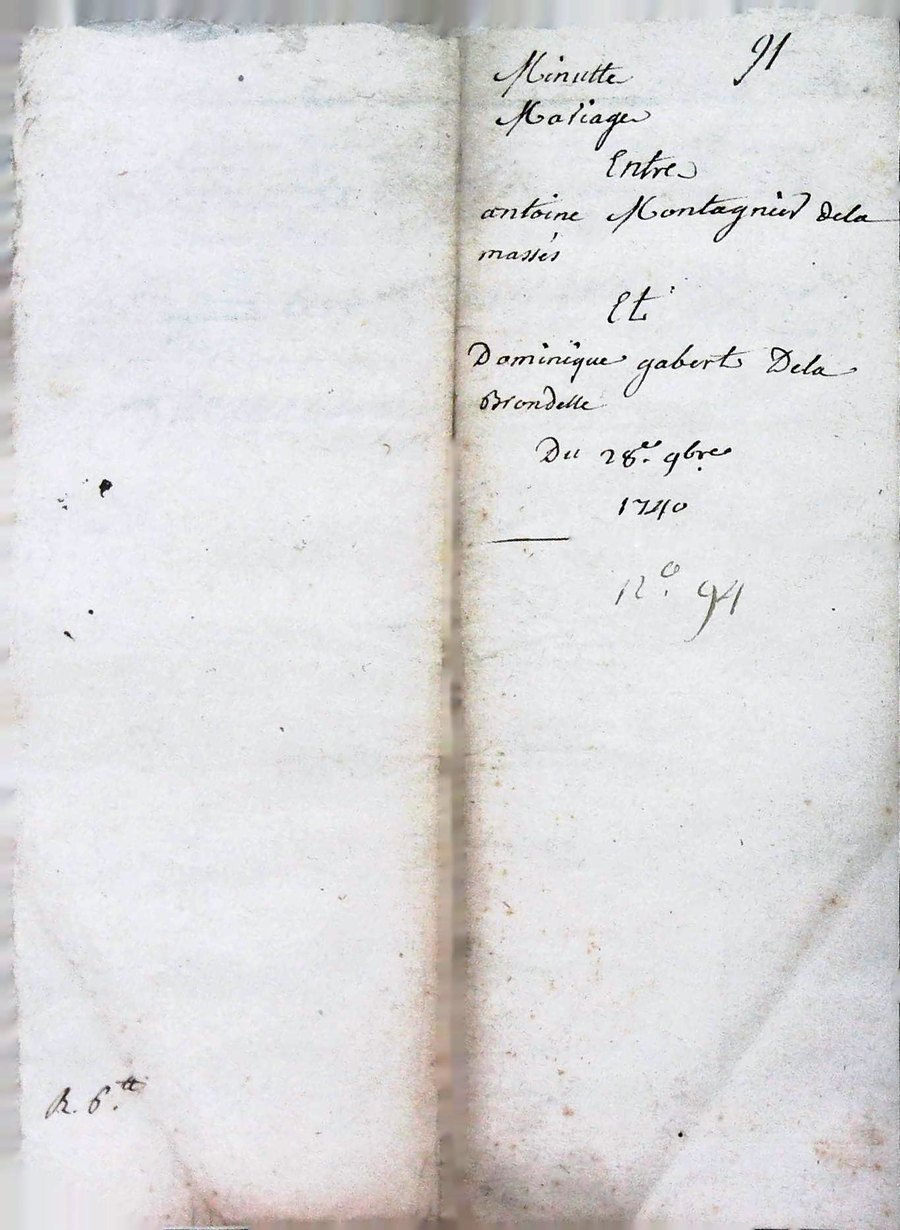 91
Minutte
Mariage
Entre
antoine Montagnier dela
massés
Et
Dominique gabert Dela
Brondelle
Du 28.e 9bre
1740
N.o 94
R. 6.tt